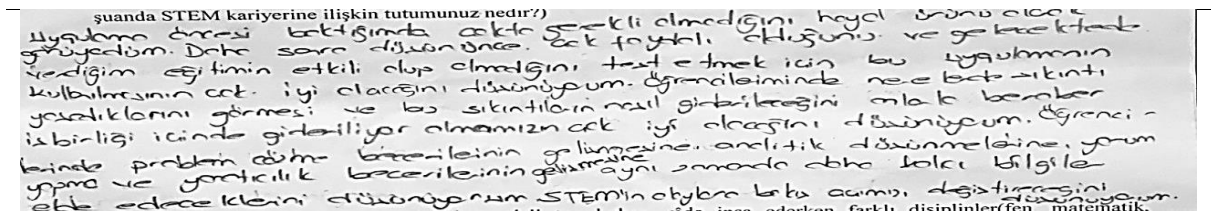 şuanda STEM kariyerine ilişkin tutumunuz nedir?)
Uygulama öncesi baktığımda çokta gerekli olmadığını hayal ürünü olarak
görüyordum. Daha sonra düşününce. çok faydalı olduğunu ve gelecekteki
verdiğim eğitimin etkili olup olmadığını test etmek için bu uygulamanın
kullanılmasının çok. iyi olacağını düşünüyorum. Öğrencileriminde sıkıntı
yaşadıklarını görmesi ve bu sıkıntıların nasıl giderileceğini onlarla beraber
işbirliği içinde gideriliyor olmamızın çok iyi olacağını düşünüyorum. Öğrenci-
lerinde problem çözme becerilerinin gelişmesine, analitik düşünmelerine, yorum
yapma ve yaratıcılık becerilerinin gelişmesine aynı zamanda daha kalıcı bilgiler
elde edeceklerini düşünüyorum STEM'in olaylara bakış açımızı değiştireceğini
düşünüyorum.
ince ederken farklı disiplinler(fen matematik